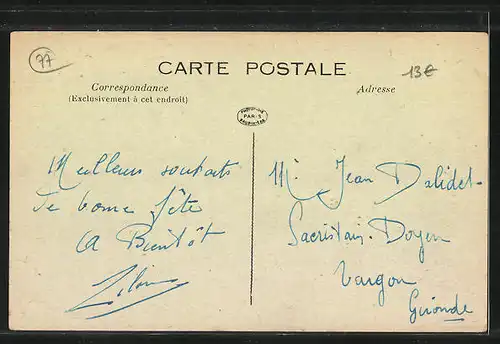 77
CARTE POSTALE
13€
Correspondance
(Exclusivement à cet endroit)
Adresse
PARIS
Meilleurs souhaits
de bonne fête
A Bientôt
Mr Jean Dalidet
Sacristain-Doyen
Targon
Gironde